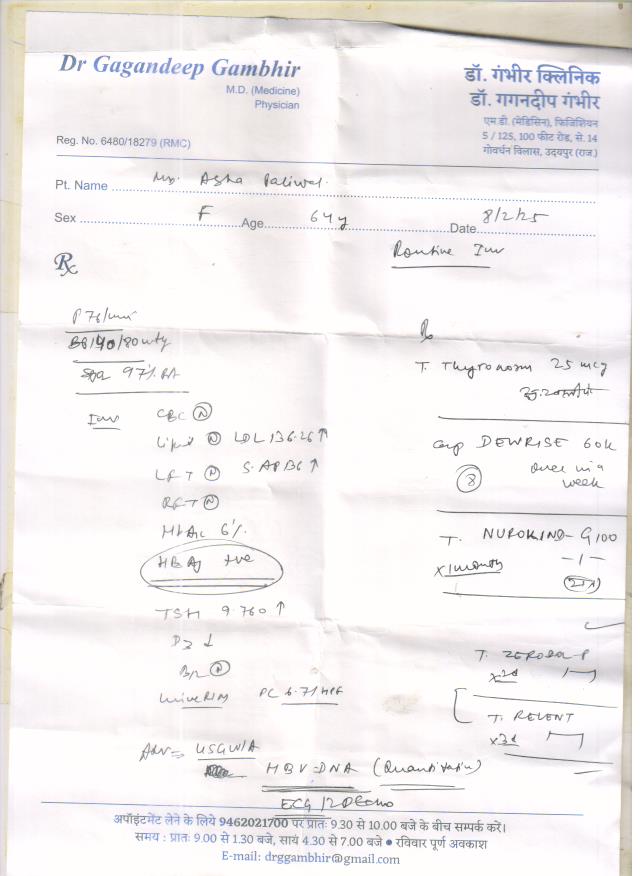 Dr Gagandeep Gambhir
M.D. (Medicine)
Physician
Reg. No. 6480/18279 (RMC)
डॉ. गंभीर क्लिनिक
डॉ. गगनदीप गंभीर
एम.डी. (मेडिसिन), फिजिशियन
5 / 125, 100 फीट रोड, से. 14
गोवर्धन विलास, उदयपुर (राज.)
Pt. Name Mrs. Asha Paliwal.
Sex F Age 64y Date 8/2/25
Routine Inv
Rx
P 76/min
140/80
97% RA
Inv CBC (N)
Lipid (N) LDL 136.26 ↑
LFT (N)
RFT (N)
HbA1c 6%
HBAg +ve
TSH 9.760 ↑
D3 ↓
B12 (N)
Urine R/M PC 6-7/HPF
Adv ⇒ USG W/A
HBV-DNA (Quantitative)
ECG / 2D Echo
Rx
T. Thyronorm 25 mcg
Cap DEWRISE 60K
(8) once in a
week
T. NUROKIND-G 100
x1 month -1-
T. ZERODOL-P
T. RELENT
x3d
अपॉइंटमेंट लेने के लिये 9462021700 पर प्रातः 9.30 से 10.00 बजे के बीच सम्पर्क करें।
समय : प्रातः 9.00 से 1.30 बजे, सायं 4.30 से 7.00 बजे ● रविवार पूर्ण अवकाश
E-mail: drggambhir@gmail.com